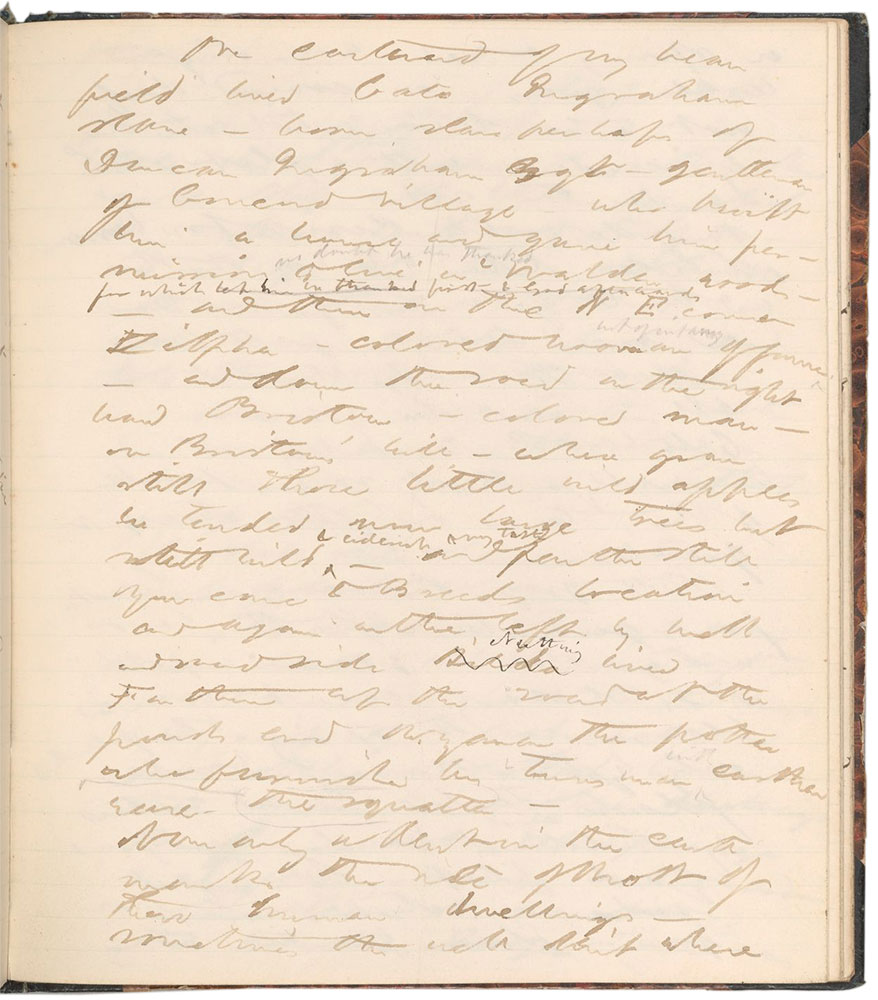 On eastward of my bean
field lived Cato Ingraham
slave — born slave perhaps of
Duncan Ingraham Esqr — gentleman
of Concord village — who built
him a house and gave him per—
no doubt he was thanked
mission to live in Walden woods —
for which let him be thanked
— and then on the N E corner
Zilpha — colored woman of fame
— and down the road on the right
hand Bristow — colored man —
on Bristow's hill — where grow
still those little wild apples
he tended now large trees but
& ciderish to my taste
still wild — and farther still
you come to Breeds location
and again on the left by well
Nutting
and roadside lived
Farther up the road at the
ponds end Wyman the potter
with
who furnished his townsmen earthen
ware — the squatter —
Now only a dent in the earth
marks the site of most of
these human dwellings —
sometimes the well dent where